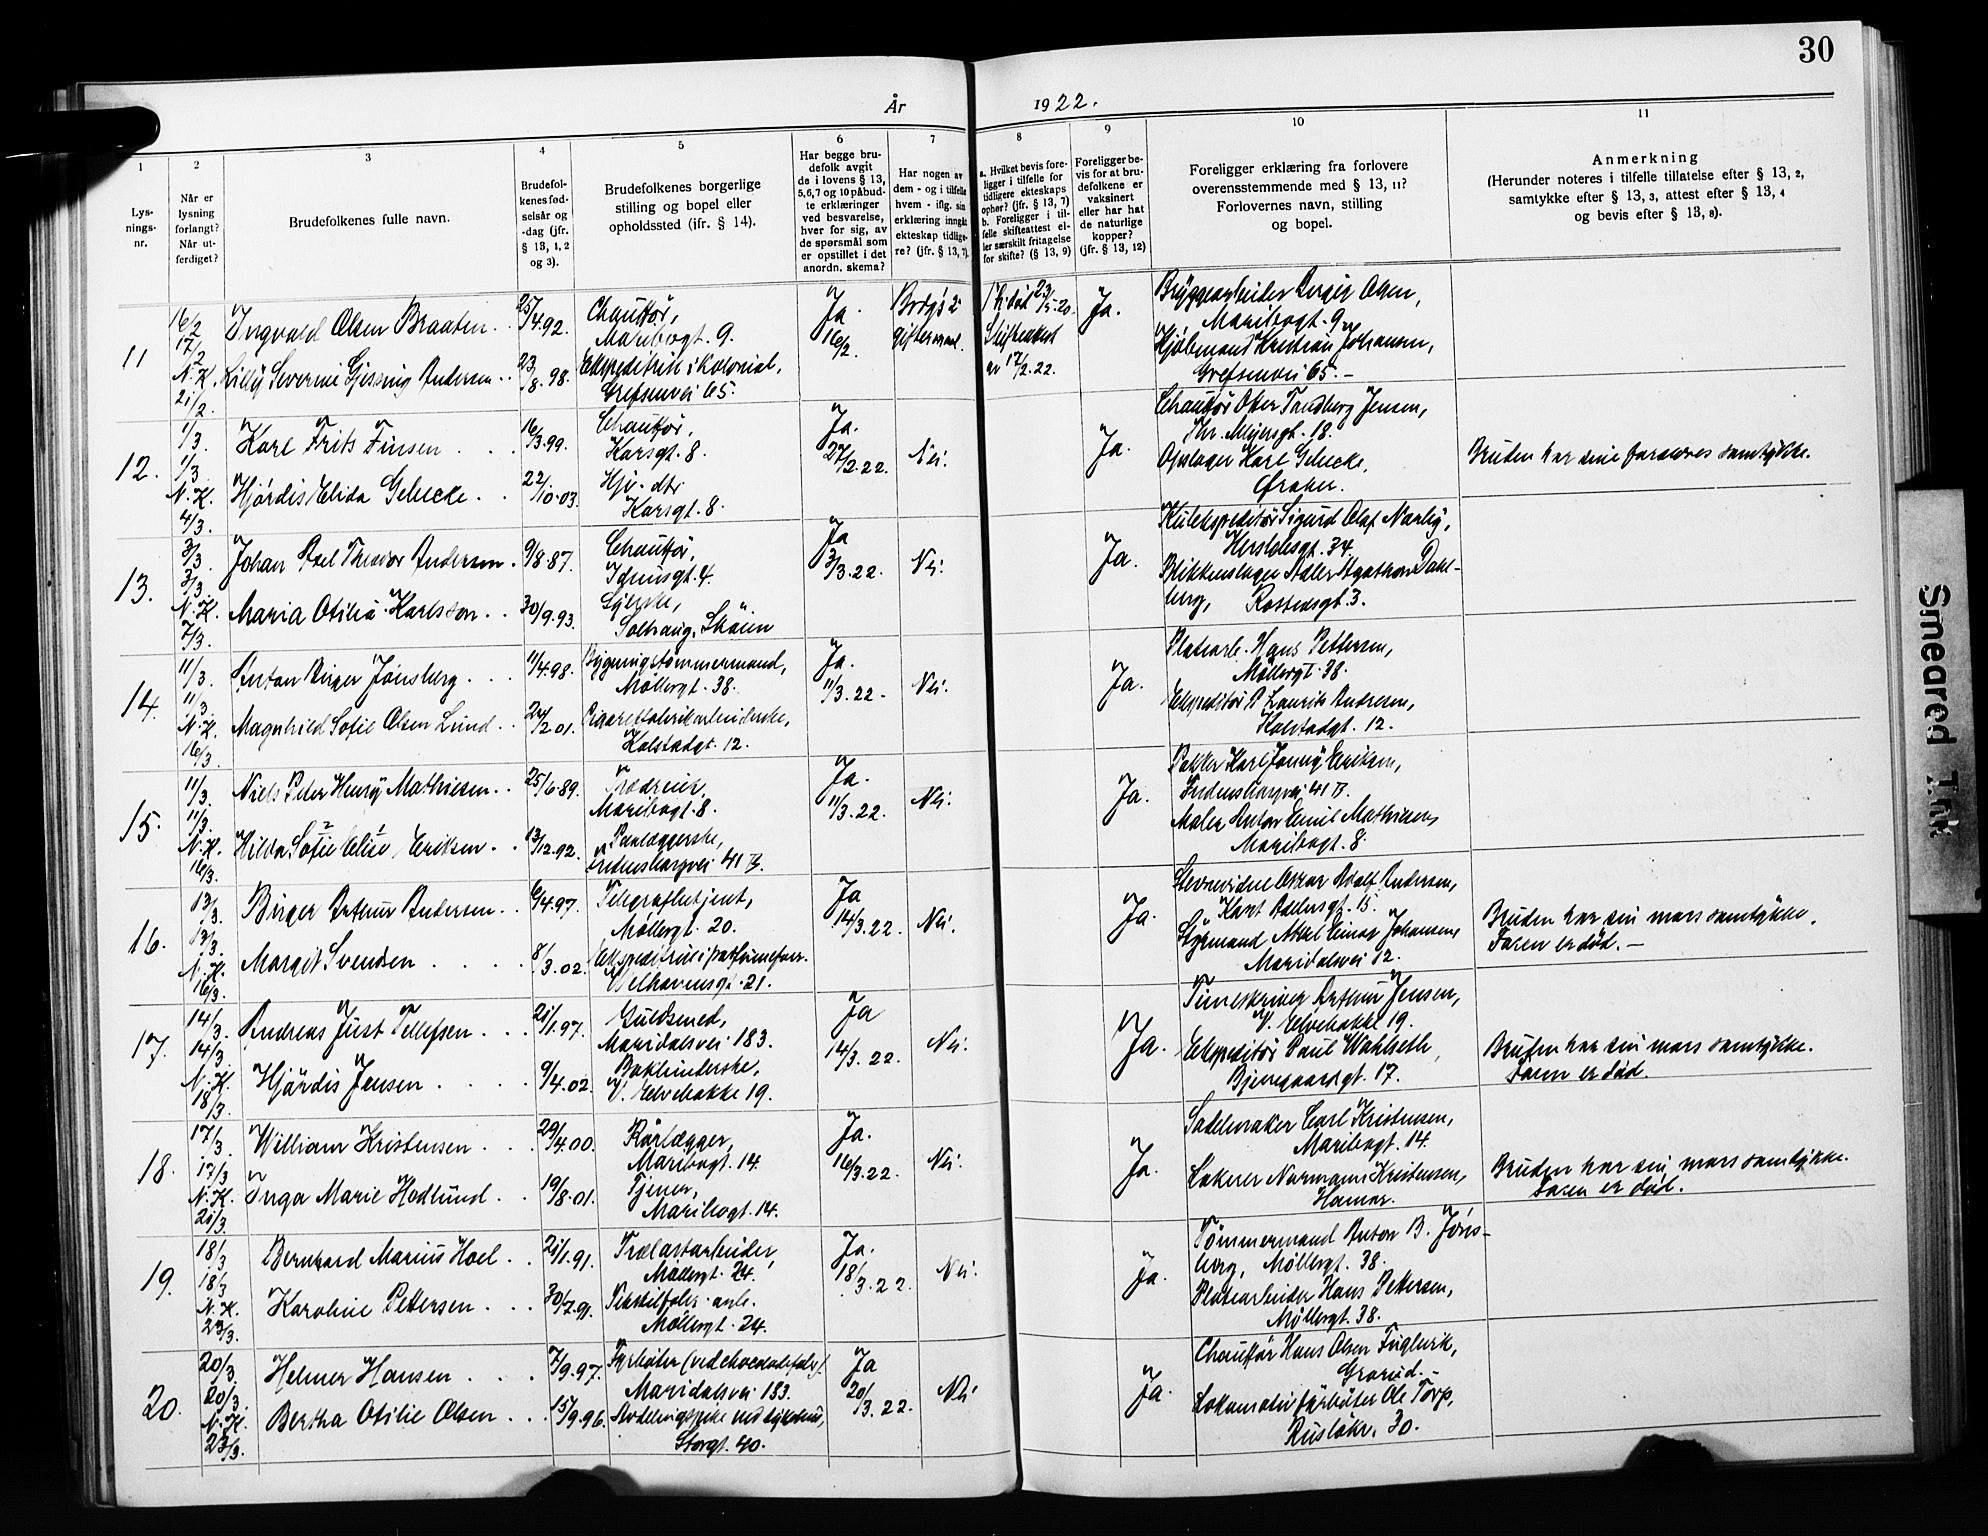 30
År 1922.
1
2
3
4
5
6
7
8
9
10
11
Lys-
nings-
nr.
Når er
lysning
forlangt?
Når ut-
ferdiget?
Brudefolkenes fulle navn.
Brudefol-
kenes fød-
selsår og
-dag (jfr.
§ 13, 1, 2
og 3).
Brudefolkenes borgerlige
stilling og bopel eller
opholdssted (jfr. § 14).
Har begge bru-
defolk avgit
de i lovens § 13,
5, 6, 7 og 10 påbud-
te erklæringer
ved besvarelse,
hver for sig, av
de spørsmål som
er opstillet i det
anordn. skema?
Har nogen av
dem - og i tilfelle
hvem - iflg. sin
erklæring inngått
ekteskap tidlige-
re? (jfr. § 13, 7)
a. Hvilket bevis fore-
ligger i tilfelle for
tidligere ekteskaps
ophør? (jfr. § 13, 7)
b. Foreligger i til-
felle skifteattest el-
ler særskilt fritagelse
for skifte? (§ 13, 9)
Foreligger be-
vis for at bru-
defolkene er
vaksinert
eller har hat
de naturlige
kopper?
(jfr. § 13, 12)
Foreligger erklæring fra forlovere
overensstemmende med § 13, 11?
Forlovernes navn, stilling
og bopel.
Anmerkning
(Herunder noteres i tilfelle tillatelse efter § 13, 2,
samtykke efter § 13, 3, attest efter § 13, 4
og bevis efter § 13, 8).
11
16/2
17/2
N.K.
21/2.
Ingvald Olsen Braaten
25/4.92.
Chauffør,
Maribogt. 9.
Lilly Severine Gjessing Andersen
23/8.98.
Ekspeditrise i kolonial,
Grefsenvei 65.
Ja.
16/2.
giftermaal.
av 17/2.22.
Ja.
Bryggearbeider Birger Olsen,
Maribogt. 9
Hjulmand Kristian Johansen,
Grefsenvei 65.-
12.
1/3.
1/3.
N.K.
4/3.
Karl Frits Finsen
16/3.99.
Chauffør,
Korsgt. 8.
Hjørdis Elida Gehecke
22/10.03.
Hjv. dtr
Korsgt. 8.
Ja.
27/2.22.
Nei.
Ja.
Chauffør Otter Tandberg Jensen,
Thr. Meyersgt. 18.
Opslager Karl Gehecke,
Bruden har sine foreldres samtykke.
13.
3/3.
3/3.
N.K.
7/3.
Johan Axel Theodor Andersen
9/8.87.
Chauffør,
Idunsgt. 4.
Maria Otilia Karlsson
30/9.93.
Syerske,
Solhaug, Skøien
Ja
3/3.22.
Nei.
Ja.
Kulekspeditør Sigurd Olaf Narby,
Herslebsgt. 34
Blikkenslager Adler Agathon Dahl-
berg, Rostedsgt. 3.
14.
11/3.
11/3.
N.K.
16/3.
Anton Birger Jönsberg
11/4.98.
Bygningstømmermand,
Møllergt. 38.
Magnhild Sofie Olsen Lund
24/2.01.
Cigarettfabrikarbeiderske,
Kolstadgt. 12.
Ja.
11/3.22.
Nei.
Ja.
Pladsarb. Hans Pettersen,
Møllergt. 38.
Ekspeditør P Laurits Andresen,
Kolstadgt. 12.
15.
11/3.
11/3.
N.K.
16/3.
Niels Peter Henry Mathiesen
25/6.89.
Trædreier,
Maribogt. 8.
Hilda Sofie Elise Eriksen
13/12.92.
Paalæggerske,
Fredensborgvei 41 II.
Ja.
11/3.22.
Nei.
Ja.
Pakker Karl Jonny Eriksen,
Fredensborgvei 41 II.
Maler Anton Emil Mathiesen,
Maribogt. 8.
16.
13/3.
13/3.
N.K.
16/3.
Birger Arthur Andersen
6/4.97.
Telegrafbetjent,
Møllergt. 20.
Margit Svendsen
8/3.02.
Ekspeditrise i parfumeforr.
Welhavensgt. 21.
Ja
14/3.22.
Nei.
Ja.
Stevnevidne Oskar Adolf Andersen,
Kort Adelersgt. 15.
Styrmand Aksel Einar Johansen,
Maridalsvei 12.
Bruden har sin mors samtykke.
Faren er død.-
17.
14/3.
14/3.
N.K.
18/3.
Andreas Just Tellefsen
21/1.97.
Guldsmed,
Maridalsvei 183.
Hjördis Jensen
9/4.02.
Bokbinderske,
V. Elvebakke 19.
Ja
14/3.22.
Nei.
Ja.
Timeskriver Arthur Jensen,
V. Elvebakke 19.
Ekspeditör Paul Wahlseth,
Bjerregaardsgt. 17.
Bruden har sin mors samtykke.
Faren er död.
18.
17/3.
17/3
N.K.
21/3
William Kristensen
29/4.00.
Rørlægger,
Maribogt. 14.
Inga Marie Hedlund
19/8.01.
Tjener,
Maribogt. 14.
Ja.
16/3.22.
Nei.
Ja.
Sadelmaker Carl Kristensen,
Maribogt. 14.
Lakerer Normann Kristensen,
Hamar.
Bruden har sin mors samtykke.
Faren er död.
19.
18/3
18/3
N.K.
23/3.
Bernhard Marius Hoel
21/1.91.
Trælastarbeider,
Møllergt. 24.
Karoline Pettersen
30/7.91.
Tekstilfabr. arb.
Møllergt. 24.
Ja.
18/3.22.
Nei.
Ja.
Tömmermand Anton B. Jöns-
berg, Møllergt. 38.
Pladsarbeider Hans Pettersen,
Møllergt. 38.
20.
20/3.
20/3.
N.K.
23/3.
Helmer Hansen
7/9.97.
Fyrbøter (ved chocoladefabr.)
Maridalsvei 183.
Bertha Otilie Olsen
15/9.96.
Avdelingspike ved sykehus,
Storgt. 40.
Ja
20/3.22.
Nei
Ja.
Chauffør Hans Olsen Fuglerik,
Grorud.-
Lokomotivfyrbøter Ole Torp,
Rusløkv. 30.
Smeared Ink